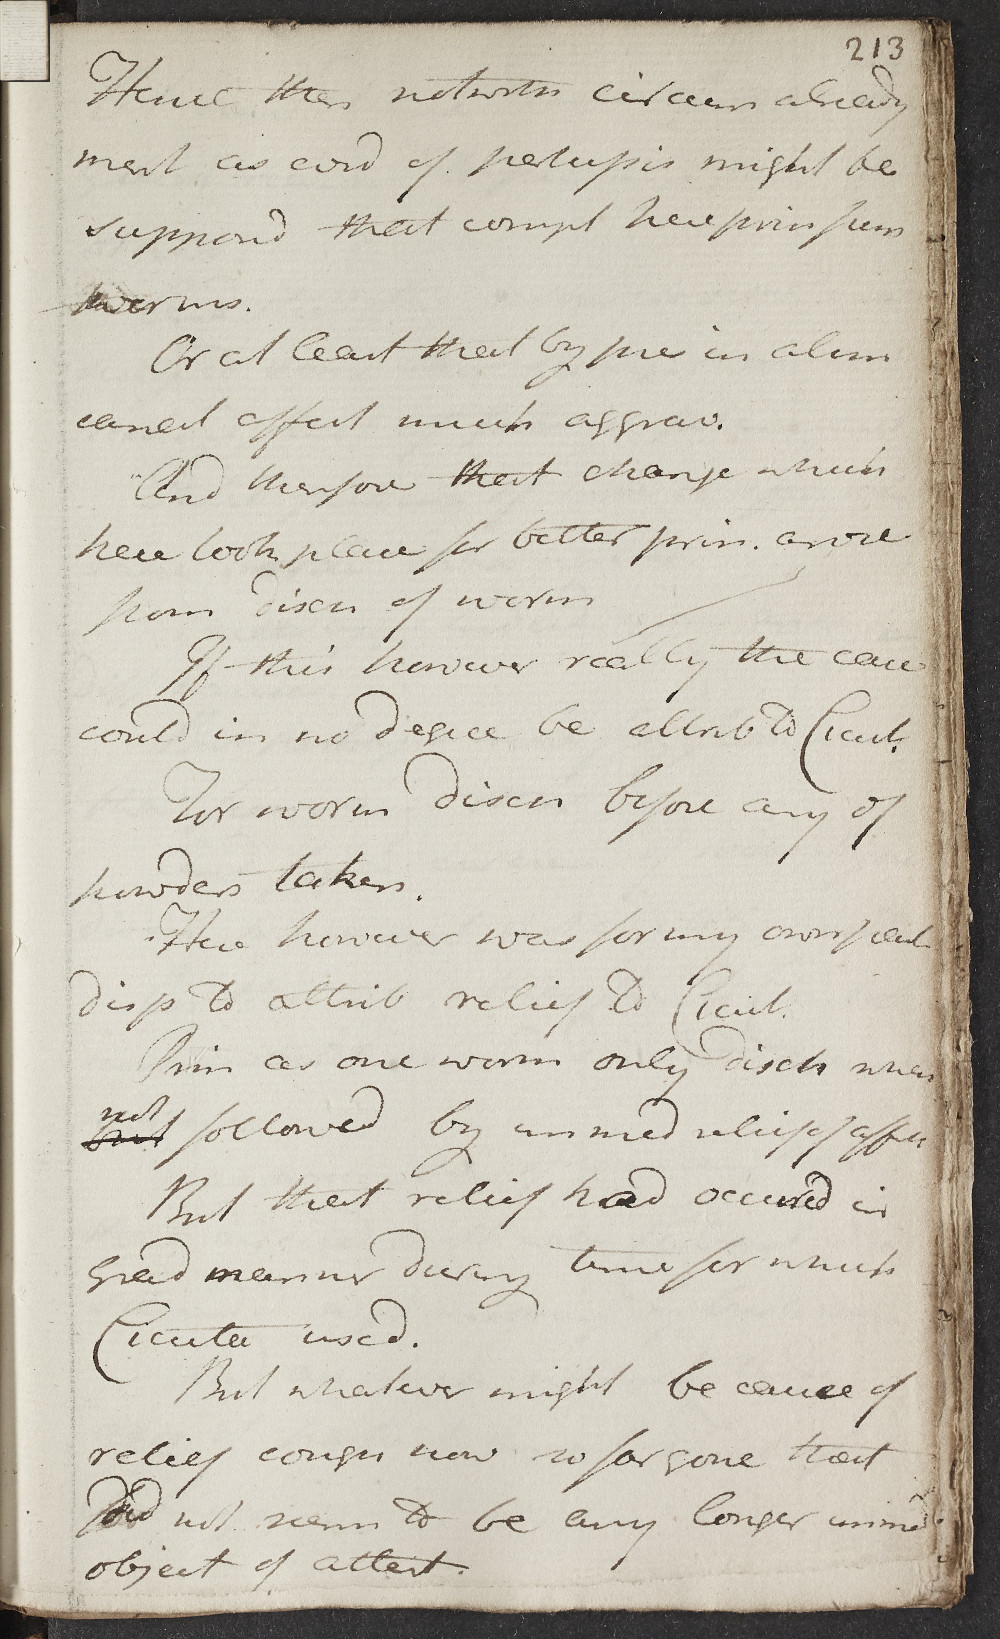 213
Hence then notwith circum already
ment as coud of pertussis might be
supposed that compl here prin from
worms.
Or at least that by pres in alim
canal affect much aggrav.
And therefore that change which
here took place for better prin. arose
from disch of worm
If this however really the case
could in no degree be attrib to Cicut.
For worm disch before any of
powders taken.
Here however was for my own part
disp to attrib relief to Cicut.
Prin as one worm only disch when
not
but followed by immed relief of affec
But that relief had occured in
grad manner during time for which
Cicuta used.
But whatever might be cause of
relief cough now so far gone that
Did not seem to be any longer immed
object of attent.